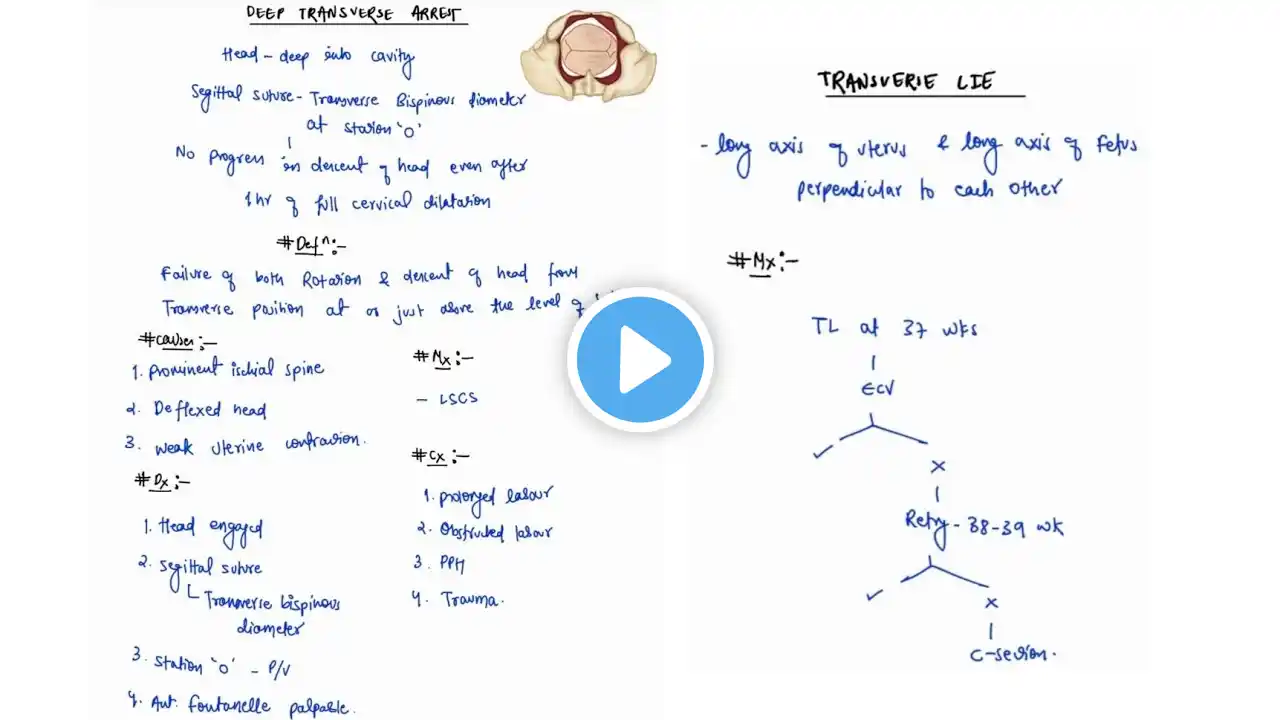 DEEP TRANSVERSE ARREST
Head - deep into cavity
Segittal suture - Transverse Bispinous diameter
at station 'O'
No progress in descent of head even after
1 hr of full cervical dilatation
# Defn:-
Failure of both Rotation & descent of head from
Transverse position at or just above the level of
# Causes:-
1. Prominent ischial spine
2. Deflexed head
3. weak uterine contraction.
# Dx:-
1. Head engaged
2. Segittal suture
Transverse bispinous
diameter
3. Station 'O' - P/V
4. Ant. fontanelle palpable.
# Mx:-
- LSCS
# Cx:-
1. Prolonged labour
2. Obstructed labour
3. PPH
4. Trauma.
TRANSVERSE LIE
- long axis of uterus & long axis of Fetus
perpendicular to each other
# Mx:-
TL at 37 wks
ECV
✓
x
Retry - 38-39 wk
✓
x
C-section.